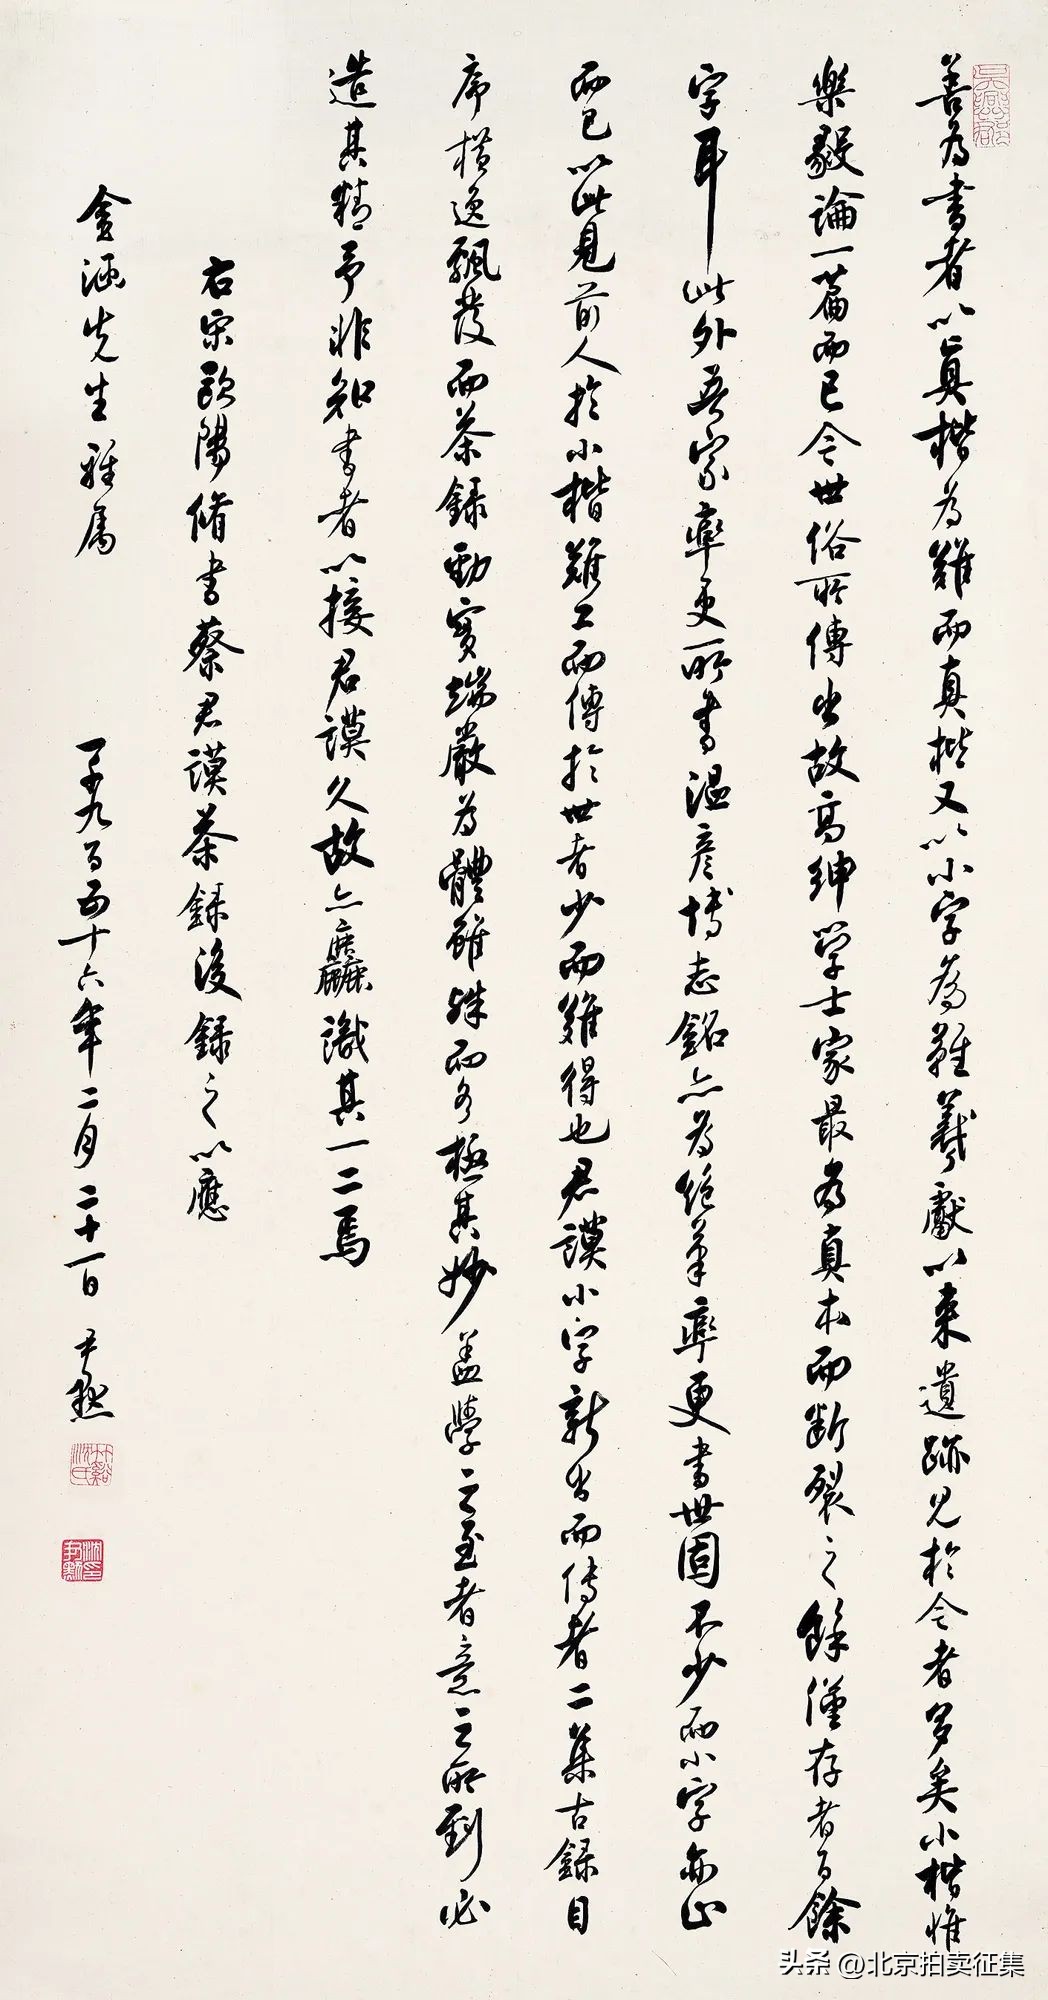 善為書者以真楷為難而真楷又以小字為難羲獻以來遺跡見於今者多矣小楷惟
樂毅論一篇而已今世俗所傳出故高紳學士家最為真本而斷裂之餘僅存者百餘
字耳此外吾家率更所書溫彥博志銘亦為絕筆率更書世固不少而小字亦止
而已以此見前人於小楷難工而傳於世者少而難得也君謨小字新出而傳者二集古錄目
序橫逸飄發而茶錄勁實端嚴為體雖殊而各極其妙蓋學之至者意之所到必
造其精予非知書者以接君謨久故亦麤識其一二焉
右宋歐陽脩書蔡君謨茶錄後錄之以應
金涵先生雅属
一千九百五十六年二月二十一日 尹默
竹谿沈氏
沈尹默印
头条 @北京拍卖征集